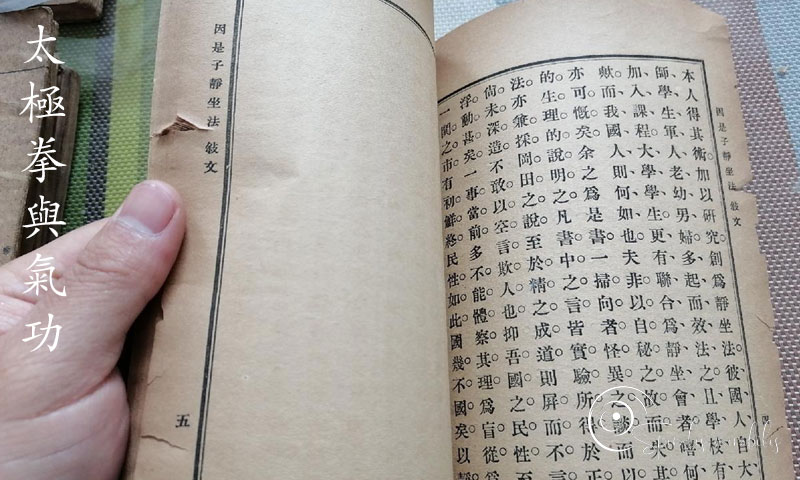 太極拳與氣功
因是子靜坐法 敘文
五
因是子靜坐法 敘文
本人得其術、加以研究。創為靜坐法。彼國人自大
師、學生、軍人、老、幼、男、婦、多起而效法之、且學校有
加入課程、大學學生、更有聯合為靜坐會者、嘻何
歟。而我國人則何如也。夫非自秘之故而失
亦可慨矣。余之為是書。一掃向者怪異之談。而以
的生理的說明之。凡書中之言。皆實驗所得。於正
法。亦兼採岡田之說。至於精之成道。則屏而不
尚未深造。不敢以空言欺人也。抑吾國之民性。至
浮動甚矣。一事當前。多不能體察其理。為盲從
一鬨之市。有初鮮終。民性如此。國幾不國矣。以靜